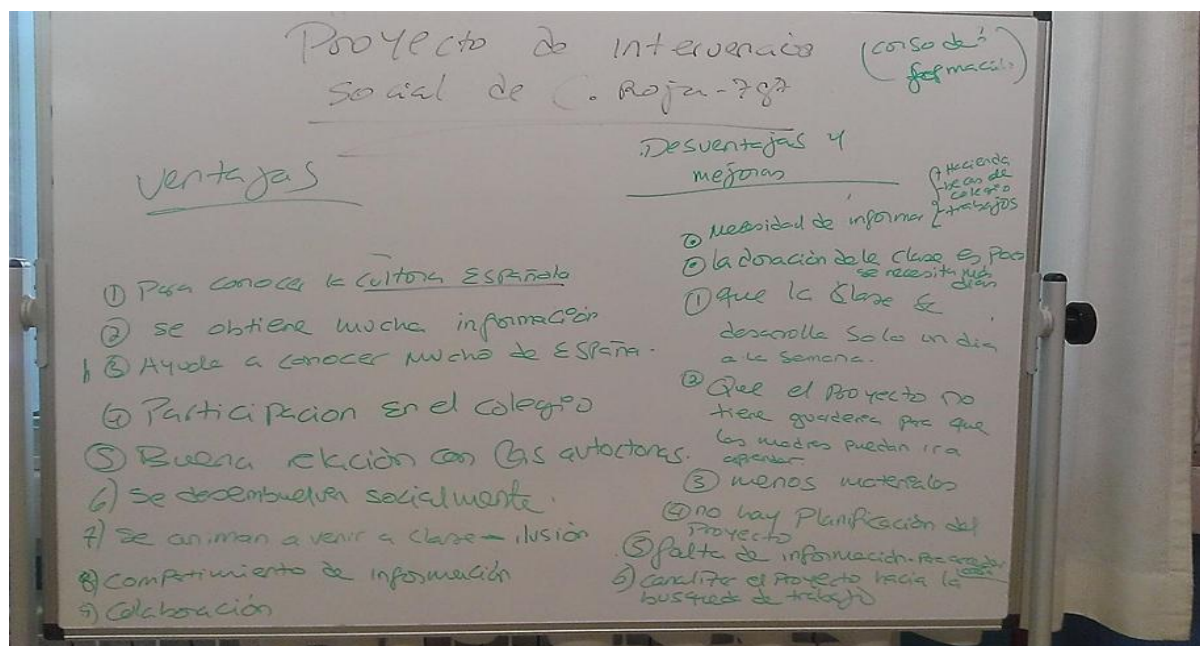 Proyecto de intervención
social de C. Roja-
(corso de
formación)
Ventajas
① Para conocer la cultora Española
② se obtiene mucha información
③ Ayuda a conocer mucho de España.
④ Participacion en el colegio
⑤ Buena relación con las autoctonas.
6) Se desembuelven socialmente.
7) Se animan a venir a clase - ilusión
8) Compartimiento de información
9) Colaboración
Desventajas y
mejoras
Hacienda
becas de
colegio
trabajos
necesidad de informar
la doración de la clase es poco
se necesita más
dias
① que la clase se
desarrolla solo un dia
a la semana.
② Que el proyecto no
tiene guaderia para que
las madres puedan ir a
aprender.
③ menos materiales
④ no hay Planificación del
Proyecto
⑤ falta de información
6) canalizar el Proyecto hacia la
busqueda de trabajo